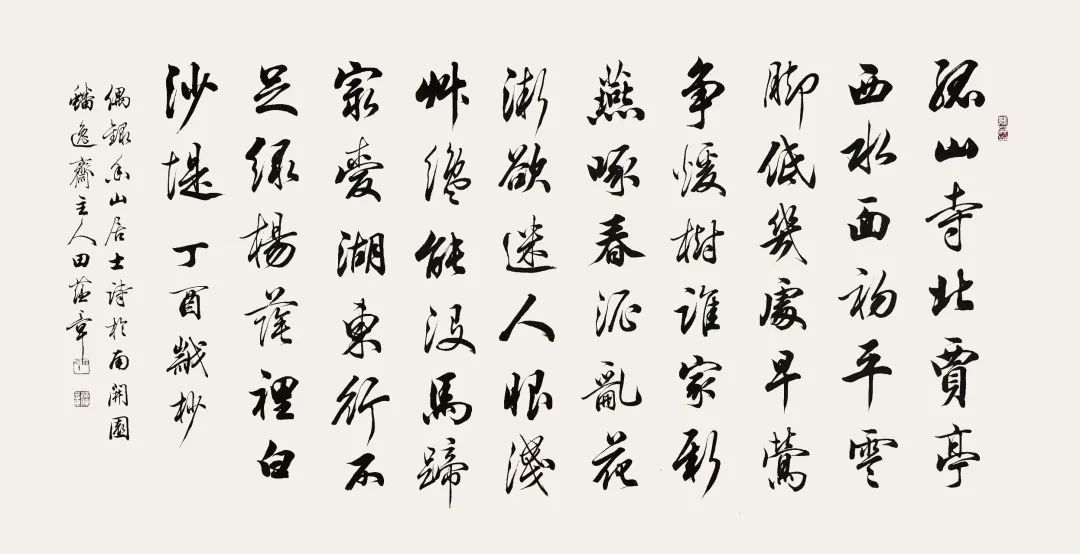 孤山寺北賈亭
西水面初平雲
脚低幾處早鶯
争暖樹誰家新
燕啄春泥亂花
漸欲迷人眼淺
艸纔能没馬蹄
最愛湖東行不
足緑楊蔭裡白
沙堤 丁酉歲杪
偶録香山居士詩於南開園
蟠逸齋主人田蘊章